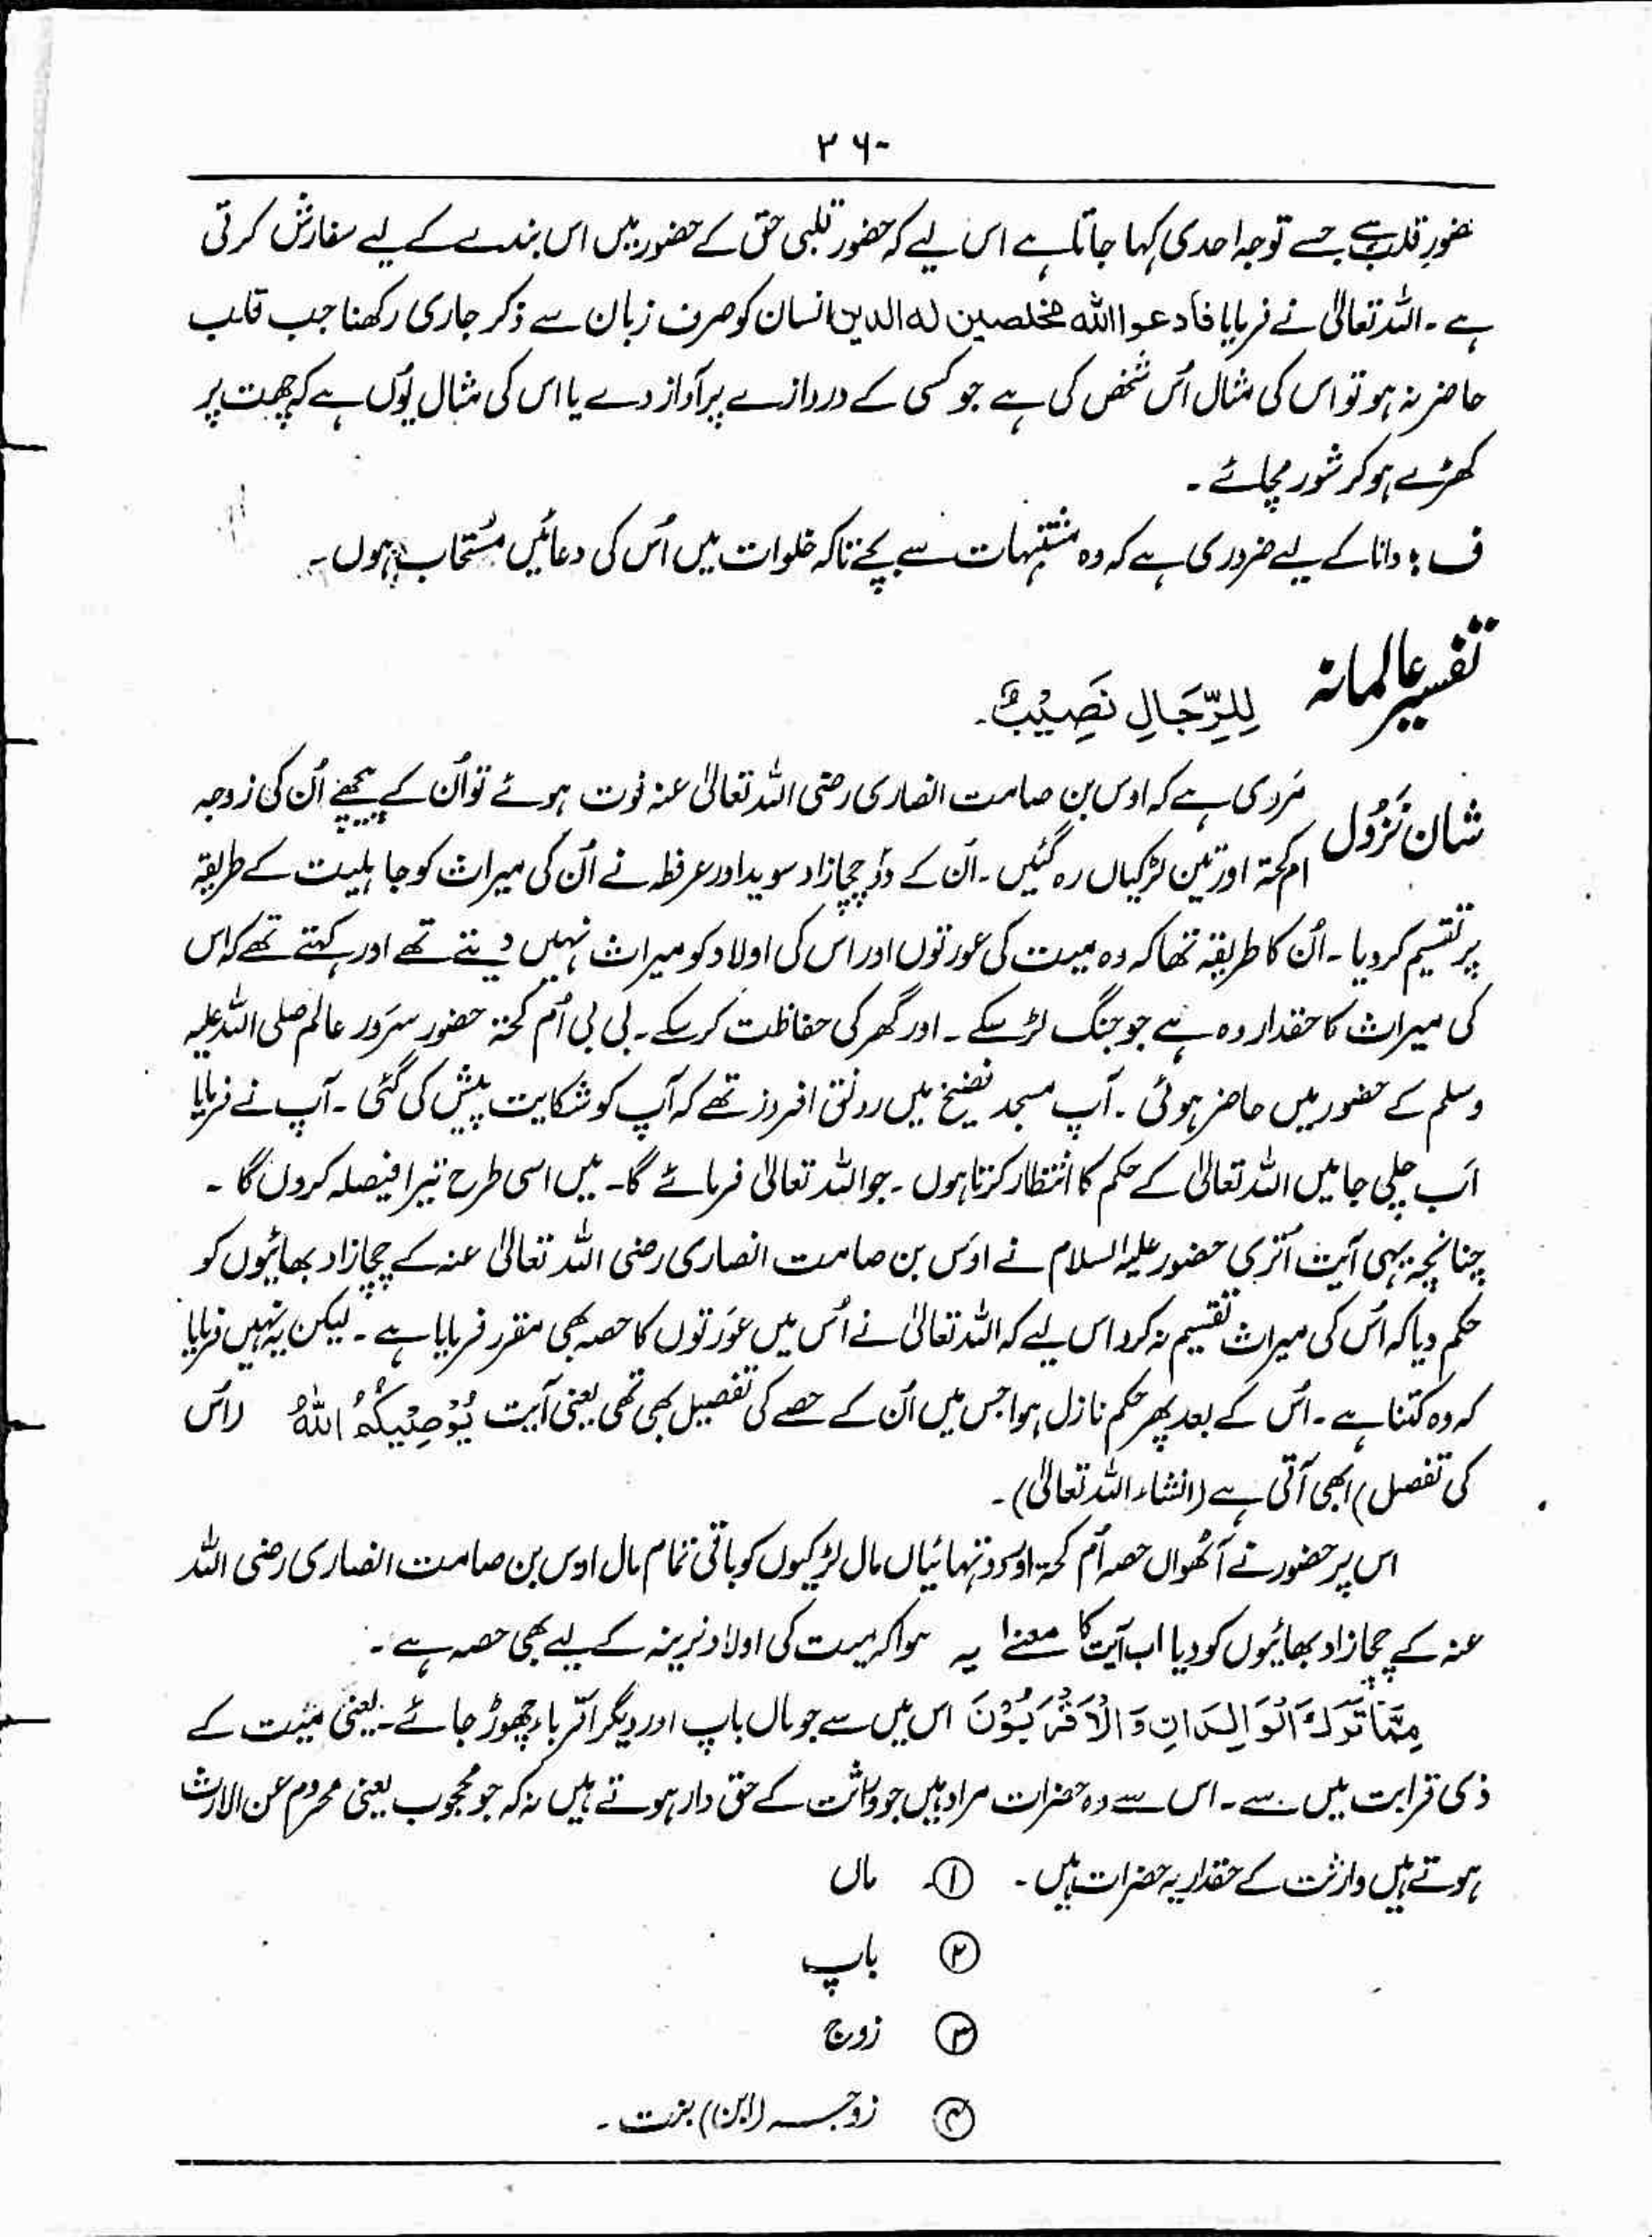 ۳۶۰
حضورِ قلب ہے جسے توجہ احدی کہا جاتا ہے اس لیے کہ حضور قلبی حق کے حضور میں اس بندے کے لیے سفارش کرتی
ہے ۔ اللہ تعالیٰ نے فرمایا فادعوا اللہ مخلصین لہ الدین انسان کو صرف زبان سے ذکر جاری رکھنا جب قلب
حاضر نہ ہو تو اس کی مثال اُس شخص کی ہے جو کسی کے دروازے پر آواز دے یا اس کی مثال یُوں ہے کہ چھت پر
کھڑے ہو کر شور مچائے ۔
ف : دانا کے لیے ضروری ہے کہ وہ مشتبہات سے بچے تاکہ خلوات میں اُس کی دعائیں مُستجاب ہوں ۔
تفسیر عالمانہ لِلرِّجَالِ نَصِیْبٌ ۔
شان نُزُول مَروی ہے کہ اوس بن صامت انصاری رضی اللہ تعالیٰ عنہ فوت ہوئے تو اُن کے پیچھے اُن کی زوجہ
ام کحۃ اور تین لڑکیاں رہ گئیں ۔ اُن کے دو چچازاد سوید اور عرفطہ نے اُن کی میراث کو جاہلیت کے طریقہ
پر تقسیم کر دیا ۔ اُن کا طریقہ تھا کہ وہ میت کی عورتوں اور اس کی اولاد کو میراث نہیں دیتے تھے اور کہتے تھے کہ اس
کی میراث کا حقدار وہ ہے جو جنگ لڑ سکے ۔ اور گھر کی حفاظت کر سکے ۔ بی بی اُم کحۃ حضور سرَور عالم صلی اللہ علیہ
وسلم کے حضور میں حاضر ہوئی ۔ آپ مسجد فضیخ میں رونق افروز تھے کہ آپ کو شکایت پیش کی گئی ۔ آپ نے فرمایا
اَب چلی جا میں اللہ تعالیٰ کے حکم کا انتظار کرتا ہوں ۔ جو اللہ تعالیٰ فرمائے گا ۔ میں اسی طرح تیرا فیصلہ کر دوں گا ۔
چنانچہ یہی آیت اُتری حضور علیہ السلام نے اوس بن صامت انصاری رضی اللہ تعالیٰ عنہ کے چچازاد بھائیوں کو
حکم دیا کہ اُس کی میراث تقسیم نہ کرو اس لیے کہ اللہ تعالیٰ نے اُس میں عورتوں کا حصہ بھی مقرر فرمایا ہے ۔ لیکن یہ نہیں فرمایا
کہ وہ کتنا ہے ۔ اُس کے بعد پھر حکم نازل ہوا جس میں اُن کے حصے کی تفصیل بھی تھی یعنی آیت یُوْصِیْکُمُ اللّٰہُ (اس
کی تفصل) ابھی آتی ہے (انشاء اللہ تعالیٰ) ۔
اس پر حضور نے آٹھواں حصہ اُم کحۃ اور دو تہائیاں مال لڑکیوں کو باقی تمام مال اوس بن صامت انصاری رضی اللہ
عنہ کے چچازاد بھائیوں کو دیا اب آیت کا معنےٰ یہ ہوا کہ میت کی اولاد نرینہ کے لیے بھی حصہ ہے ۔
مِمَّا تَرَکَ الْوَالِدَانِ وَالْاَقْرَبُوْنَ اس میں سے جو ماں باپ اور دیگر اقرباء چھوڑ جائے ۔ یعنی میّت کے
ذی قرابت میں سے ۔ اس سے وہ حضرات مراد ہیں جو وراثت کے حق دار ہوتے ہیں نہ کہ جو محجوب یعنی محروم عن الارث
ہوتے ہیں وارثت کے حقدار یہ حضرات ہیں ۔ ① ماں
② باپ
③ زوج
④ زوجہ (ابن) بنت ۔